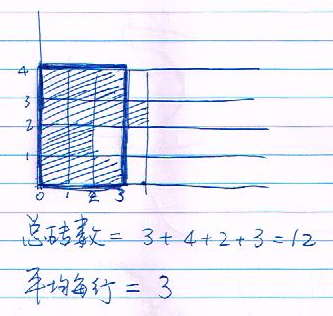 4
3
2
1
0 1 2 3
总砖数 = 3+4+2+3=12
平均每行 = 3